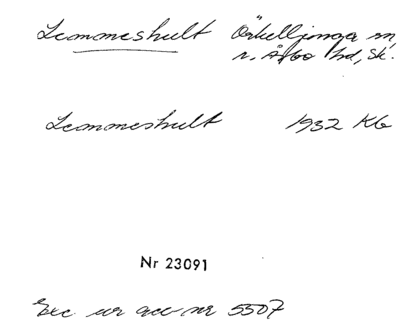 Lemmeshult Örkelljunga sn,
n. Åsbo hd, Sk.
Lemmeshult 1932 Kb
Nr 23091
Exc ur acc nr 5507